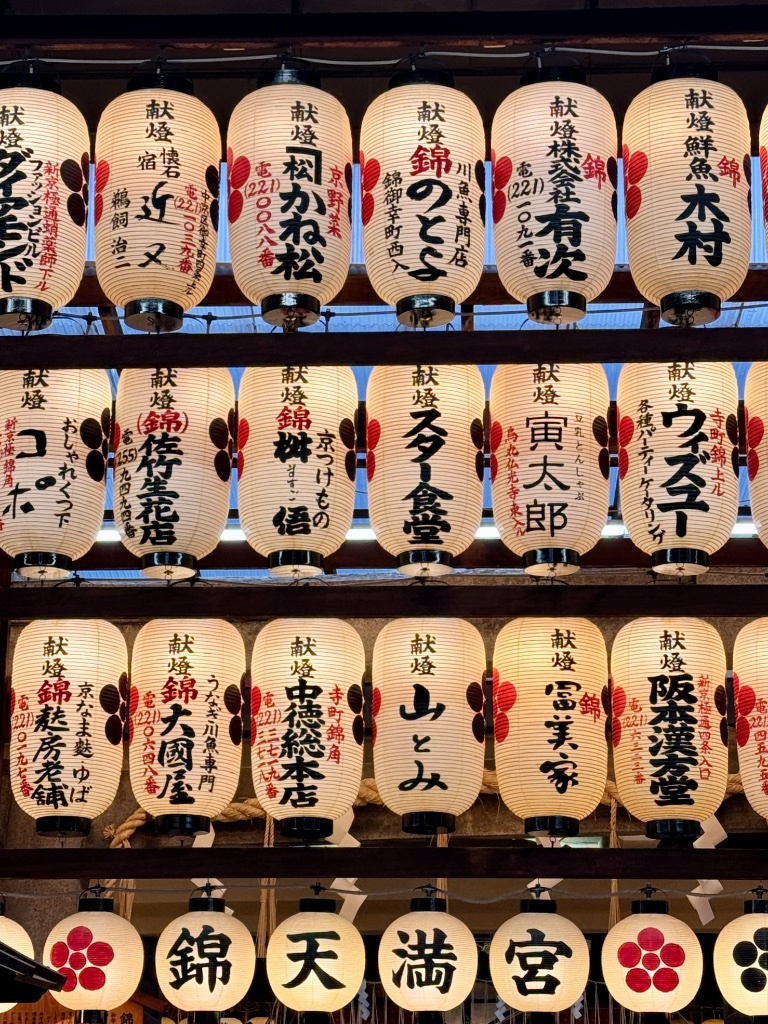 献燈
新京極通蛸薬師下ル
ファッションビル
ダイアモンド
献燈
中
懐石
宿
近又
電(221)一〇三九番
鵜飼治二
献燈
京野菜
「松
かね松
電(221)〇〇八八番
献燈
川魚専門店
錦
のとよ
錦御幸町西入
献燈
錦
株式会社
有次
電(221)一〇九一番
献燈
錦
鮮魚
木村
献燈
おしゃれくつ下
コポ
新京極錦角
献燈
(錦)
佐竹生花店
電(255)九四九四番
献燈
錦
京つけもの
桝
ますご
悟
献燈
スター食堂
献燈
豆乳とんしゃぶ
寅太郎
烏丸仏光寺東入ル
献燈
寺町錦上ル
ウィズユー
各種パーティーケータリング
献燈
京なま麩 ゆば
錦
麩房老舗
電(221)〇一九七番
献燈
うなぎ川魚専門
錦
大國屋
電(221)〇六四八番
献燈
寺町錦角
中徳総本店
電(221)三七一九番
献燈
山とみ
献燈
錦
冨美家
献燈
新京極通四条入口
阪本漢方堂
電(221)六三三三番
錦
天
満
宮